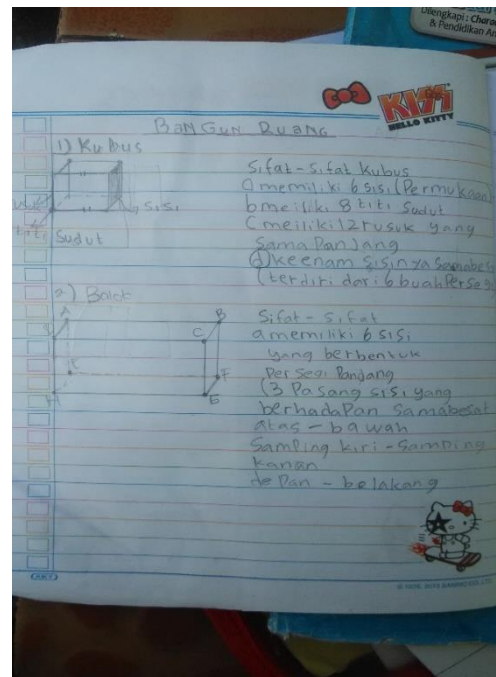 Dilengkapi : Charac
& Pendidikan An
KISS
HELLO KITTY
BANGUN RUANG
1) Kubus
Sifat-sifat kubus
a memiliki 6 sisi (Permukaan)
b meiliki 8 titi Sudut
C meiliki 12 rusuk yang
Sama Panjang
d) keenam sisinya samabesa
(terdiri dari 6 buah Persegi
Sisi
titi
Sudut
2) Balok
A
B
C
F
E
Sifat-sifat
a memiliki 6 sisi
yang berbentuk
Persegi Panjang
(3 Pasang sisi yang
berhadapan samabesar
atas - bawah
Samping kiri - Samping
kanan
de Pan - belakang